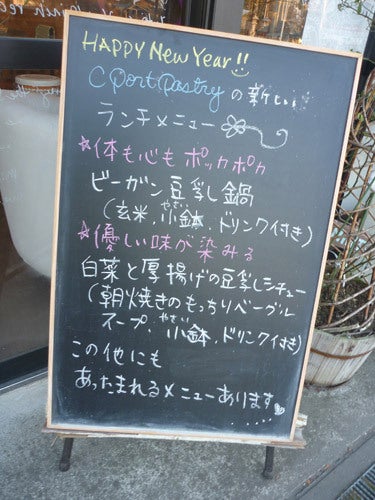 HAPPY New Year!!
C Port Pastry の新しい
ランチメニュー
☆体も心も ポッカポカ
ビーガン豆乳し鍋
(玄米,小鉢,ドリンク付き)
やさい
☆優しい味が染みる
白菜と厚揚げの豆乳しシチュー
(朝焼きのもっちりベーグル
スープ,小鉢,ドリンク付き)
やさい
この他にも
あったまれるメニューあります